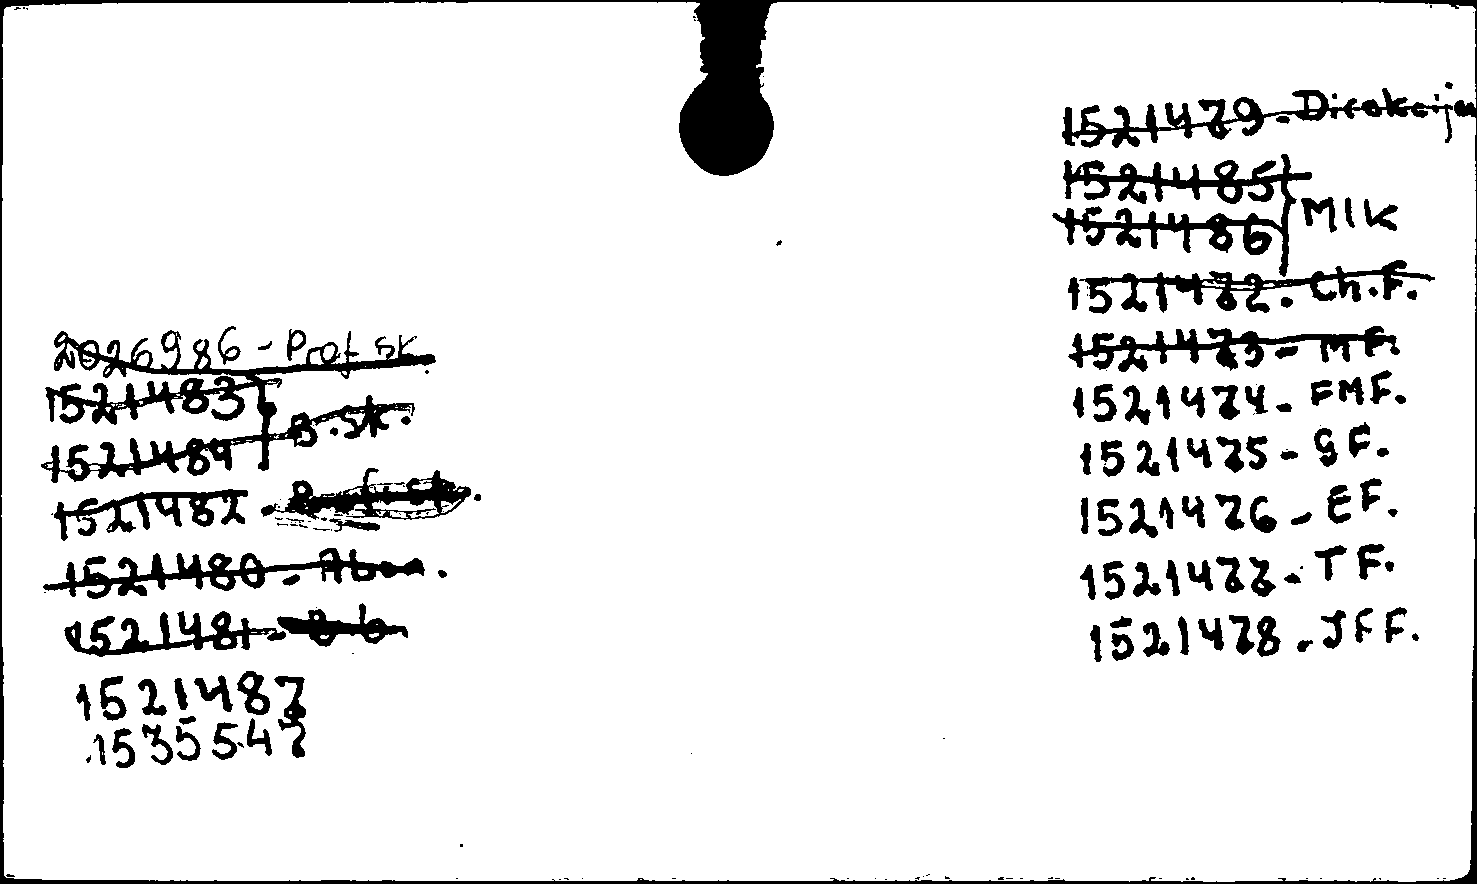 2026986 - Prof. sk.
1521483
1521484 } B.sk.
1521482 - Prof. sk.
1521480 - Abon.
1521481 -
1521487
1535547
1521479 - Direkcija
1521485
1521486 } MIK
1521472 - Ch.F.
1521473 - MF.
1521474 - FMF.
1521475 - GF.
1521476 - EF.
1521477 - TF.
1521478 - JFF.